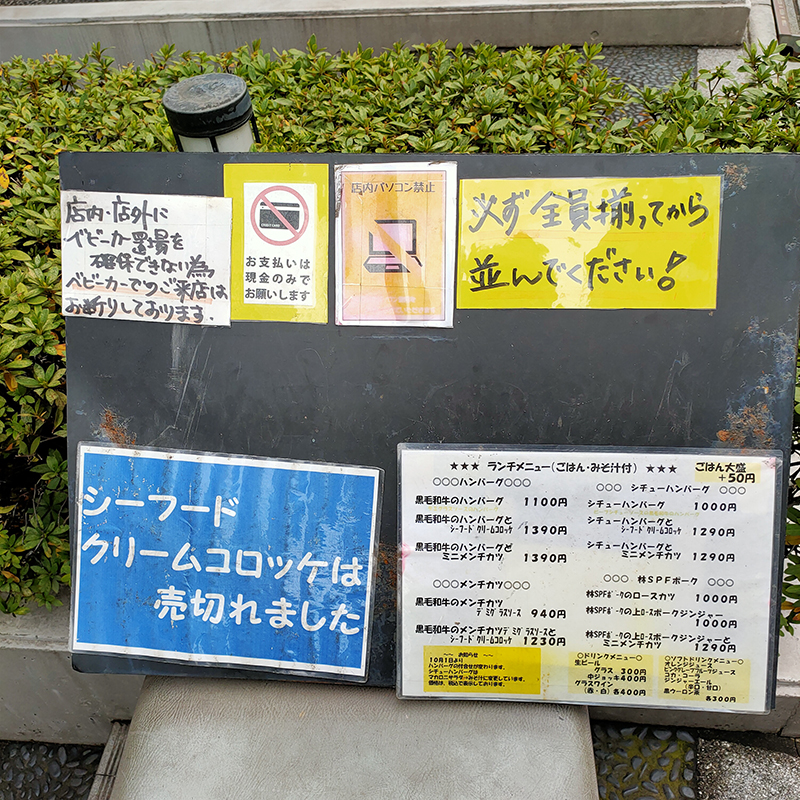 店内・店外に
ベビーカー置場を
確保できない為
ベビーカーでのご来店は
お断りしております.
お支払いは
現金のみで
お願いします
店内パソコン禁止
必ず全員揃ってから
並んでください!
シーフード
クリームコロッケは
売切れました
★★★ ランチメニュー(ごはん・みそ汁付) ★★★
ごはん大盛
+50円
○○○ハンバーグ○○○
黒毛和牛のハンバーグ 1100円
黒毛和牛のハンバーグと
シーフードクリームコロッケ 1390円
黒毛和牛のハンバーグと
ミニメンチカツ 1390円
○○○メンチカツ○○○
黒毛和牛のメンチカツ
デミグラスソース 940円
黒毛和牛のメンチカツデミグラスソースと
シーフードクリームコロッケ 1230円
○○○ シチューハンバーグ ○○○
シチューハンバーグ 1000円
シチューハンバーグと
シーフードクリームコロッケ 1290円
シチューハンバーグと
ミニメンチカツ 1290円
○○○ 林SPFポーク ○○○
林SPFポークのロースカツ 1000円
林SPFポークの上ロースポークジンジャー
1000円
林SPFポークの上ロースポークジンジャーと
ミニメンチカツ 1290円
〜 お知らせ 〜
10月1日より
ハンバーグの付合せが変わります。
シチューハンバーグは
マカロニサラダ→みそ汁に変更しています。
価格は、税込で表示しております。
○ドリンクメニュー○
生ビール
グラス 300円
中ジョッキ 400円
グラスワイン
(赤・白)各400円
○ソフトドリンクメニュー○
オレンジジュース
ピンクグレープフルーツジュース
コカ・コーラ
ジンジャーエール
(辛口・甘口)
黒ウーロン茶
各300円